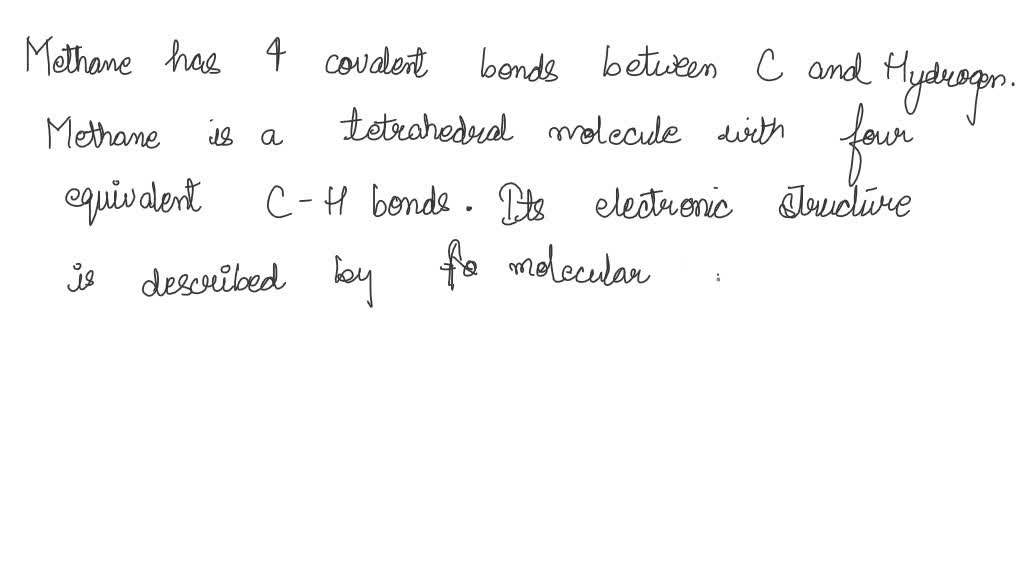 Methane has 4 covalent bonds between C and Hydrogen.
Methane is a tetrahedral molecule with four
equivalent C-H bonds. Its electronic structure
is described by molecular